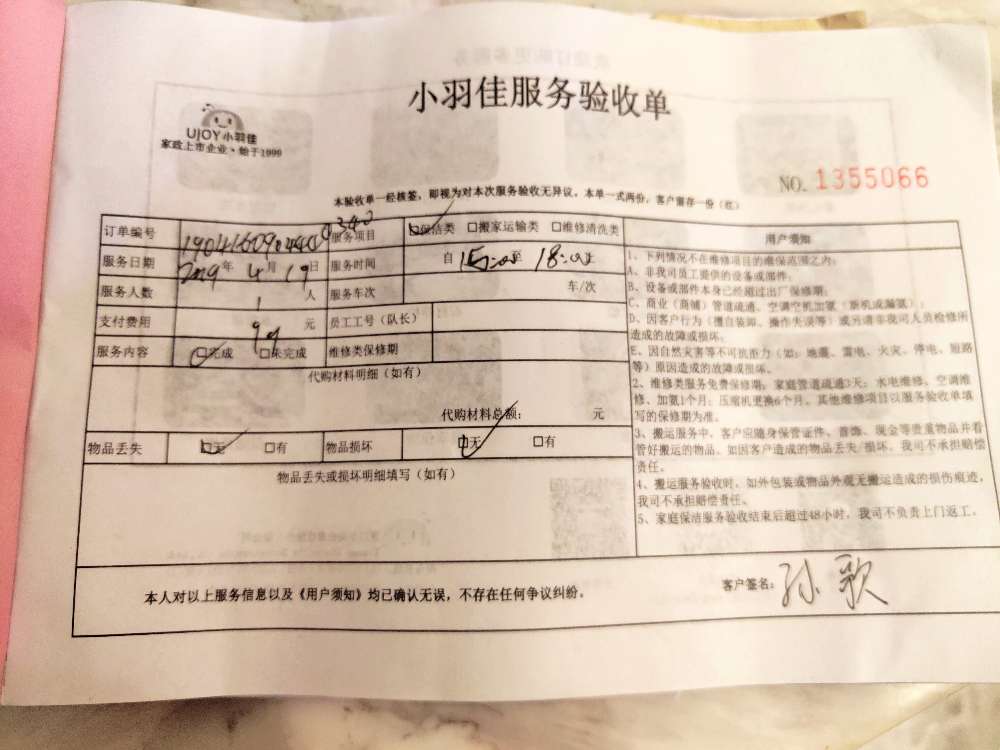 小羽佳服务验收单
UJOY小羽佳
家政上市企业·始于1999
NO. 1355066
本验收单一经核签，即视为对本次服务验收无异议。本单一式两份，客户留存一份（红）
订单编号 服务项目 □保洁类 □搬家运输类 □维修清洗类 用户须知
服务日期 2019年4月19日 服务时间 自 15:00 至 18:00 止
服务人数 1 人 服务车次 车/次
支付费用 元 员工工号（队长）
服务内容 □完成 □未完成 维修类保修期
代购材料明细（如有）
代购材料总额： 元
物品丢失 □无 □有 物品损坏 □无 □有
物品丢失或损坏明细填写（如有）
1、下列情况不在维修项目的维保范围之内：
A、非我司员工提供的设备或部件；
B、设备或部件本身已经超过出厂保修期；
C、商业（商铺）管道疏通、空调空机加氟（新机或漏氟）；
D、因客户行为（擅自装卸、操作失误等）或另请非我司人员检修所
造成的故障或损坏。
E、因自然灾害等不可抗拒力（如：地震、雷电、火灾、停电、短路
等）原因造成的故障或损坏。
2、维修类服务免费保修期：家庭管道疏通3天；水电维修、空调维
修、加氟1个月；压缩机更换6个月。其他维修项目以服务验收单填
写的保修期为准。
3、搬运服务中，客户应随身保管证件、首饰、现金等贵重物品并看
管好搬运的物品。如因客户造成的物品丢失/损坏，我司不承担赔偿
责任。
4、搬运服务验收时，如外包装或物品外观无搬运造成的损伤痕迹，
我司不承担赔偿责任。
5、家庭保洁服务验收结束后超过48小时，我司不负责上门返工。
本人对以上服务信息以及《用户须知》均已确认无误，不存在任何争议纠纷。
客户签名：孙歌